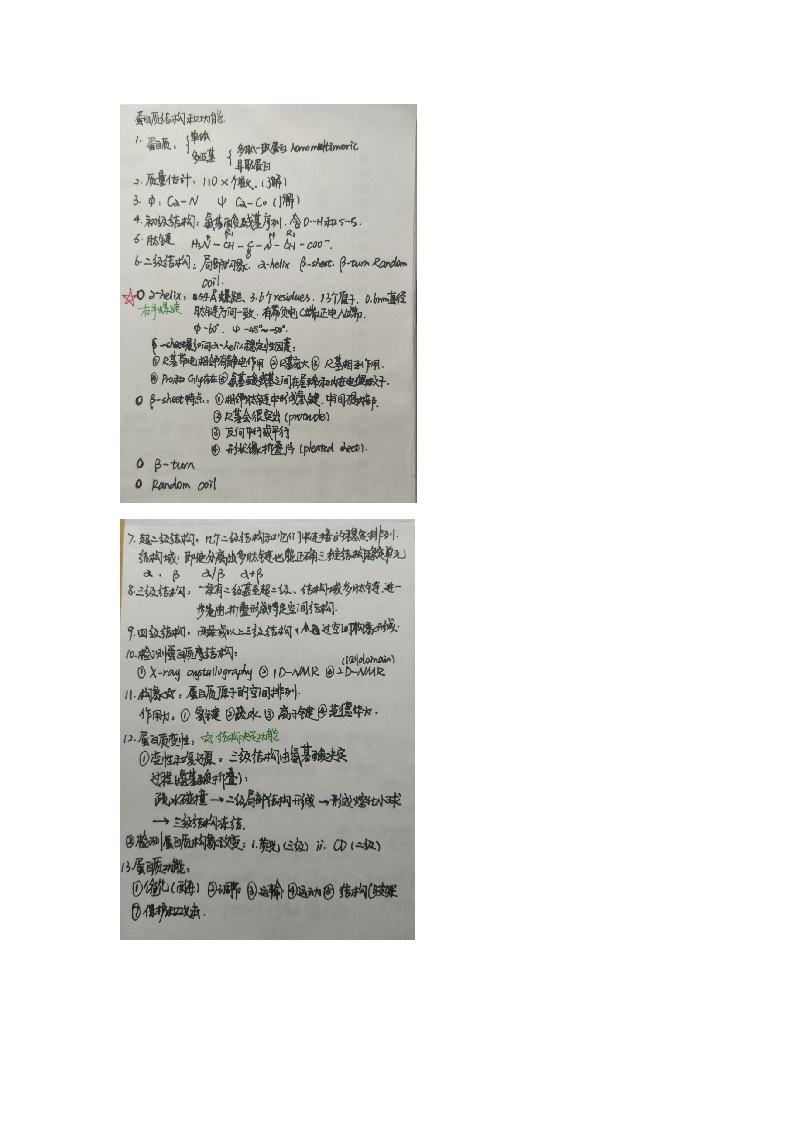 蛋白质结构和功能.
1. 蛋白质: { 单体
多亚基 { 多肽一致蛋白 homomultimeric
异聚蛋白
2. 质量估计: 110×个数. (了解)
3. Φ: Cα-N Ψ Cα-Co (了解)
4. 初级结构: 氨基酸残基序列. 含 O…H 和 S-S.
5. 肽键 H3N+-CH-C-N-CH-COO-.
R1 H R2
O
6. 二级结构: 局部构象. α-helix β-sheet. β-turn Random
coil.
α-helix: 螺距、3.6个residues. 13个原子. 0.6nm直径
右手螺旋 肽键方向一致. 有带负电C端正电N端.
Φ -60°. Ψ -45°~-50°.
影响α-helix稳定性因素:
① R基带电相邻有静电作用 ② R基 大 ③ R基相互作用.
④ Pro和Gly存在 ⑤ 氨基酸残基之间
β-sheet特点: ① 相邻肽链中形成氢键.
② R基会很突出 (protrude)
③ 反向平行或平行
④ 形状像折叠片 (pleated sheet).
β-turn
Random coil
7. 超二级结构: 几个二级结构和它们状连接的稳定排列.
结构域: 即使分离出多肽链也能正确三维结构稳定单元
α. β α/β α+β
8. 三级结构: 一条有二级甚至超二级、结构域多肽链, 进一
步卷曲, 折叠形成特定空间结构.
9. 四级结构: 两条或以上三级结构, 通过空间构象形成.
10. 检测蛋白质高结构:
① X-ray crystallography ② 1D-NMR ③ 2D-NMR
(domain)
11. 构象: 蛋白质原子的空间排列.
作用力: ① 氢键 ② 疏水 ③ 离子键 ④ 范德华力.
12. 蛋白质变性: ☆ 结构决定功能
① 变性和复原. 三级结构由氨基酸决定
过程(氨基酸折叠):
疏水碰撞 → 二级局部结构形成 → 形成熔化小球
→ 三级结构冻结.
② 检测蛋白质构象改变: i. 荧光(三级) ii. CD (二级)
13. 蛋白质功能:
① 催化(酶) ② 调节 ③ 运输 ④ 运动 ⑤ 结构 ⑥ 支架
⑦ 保护和攻击.